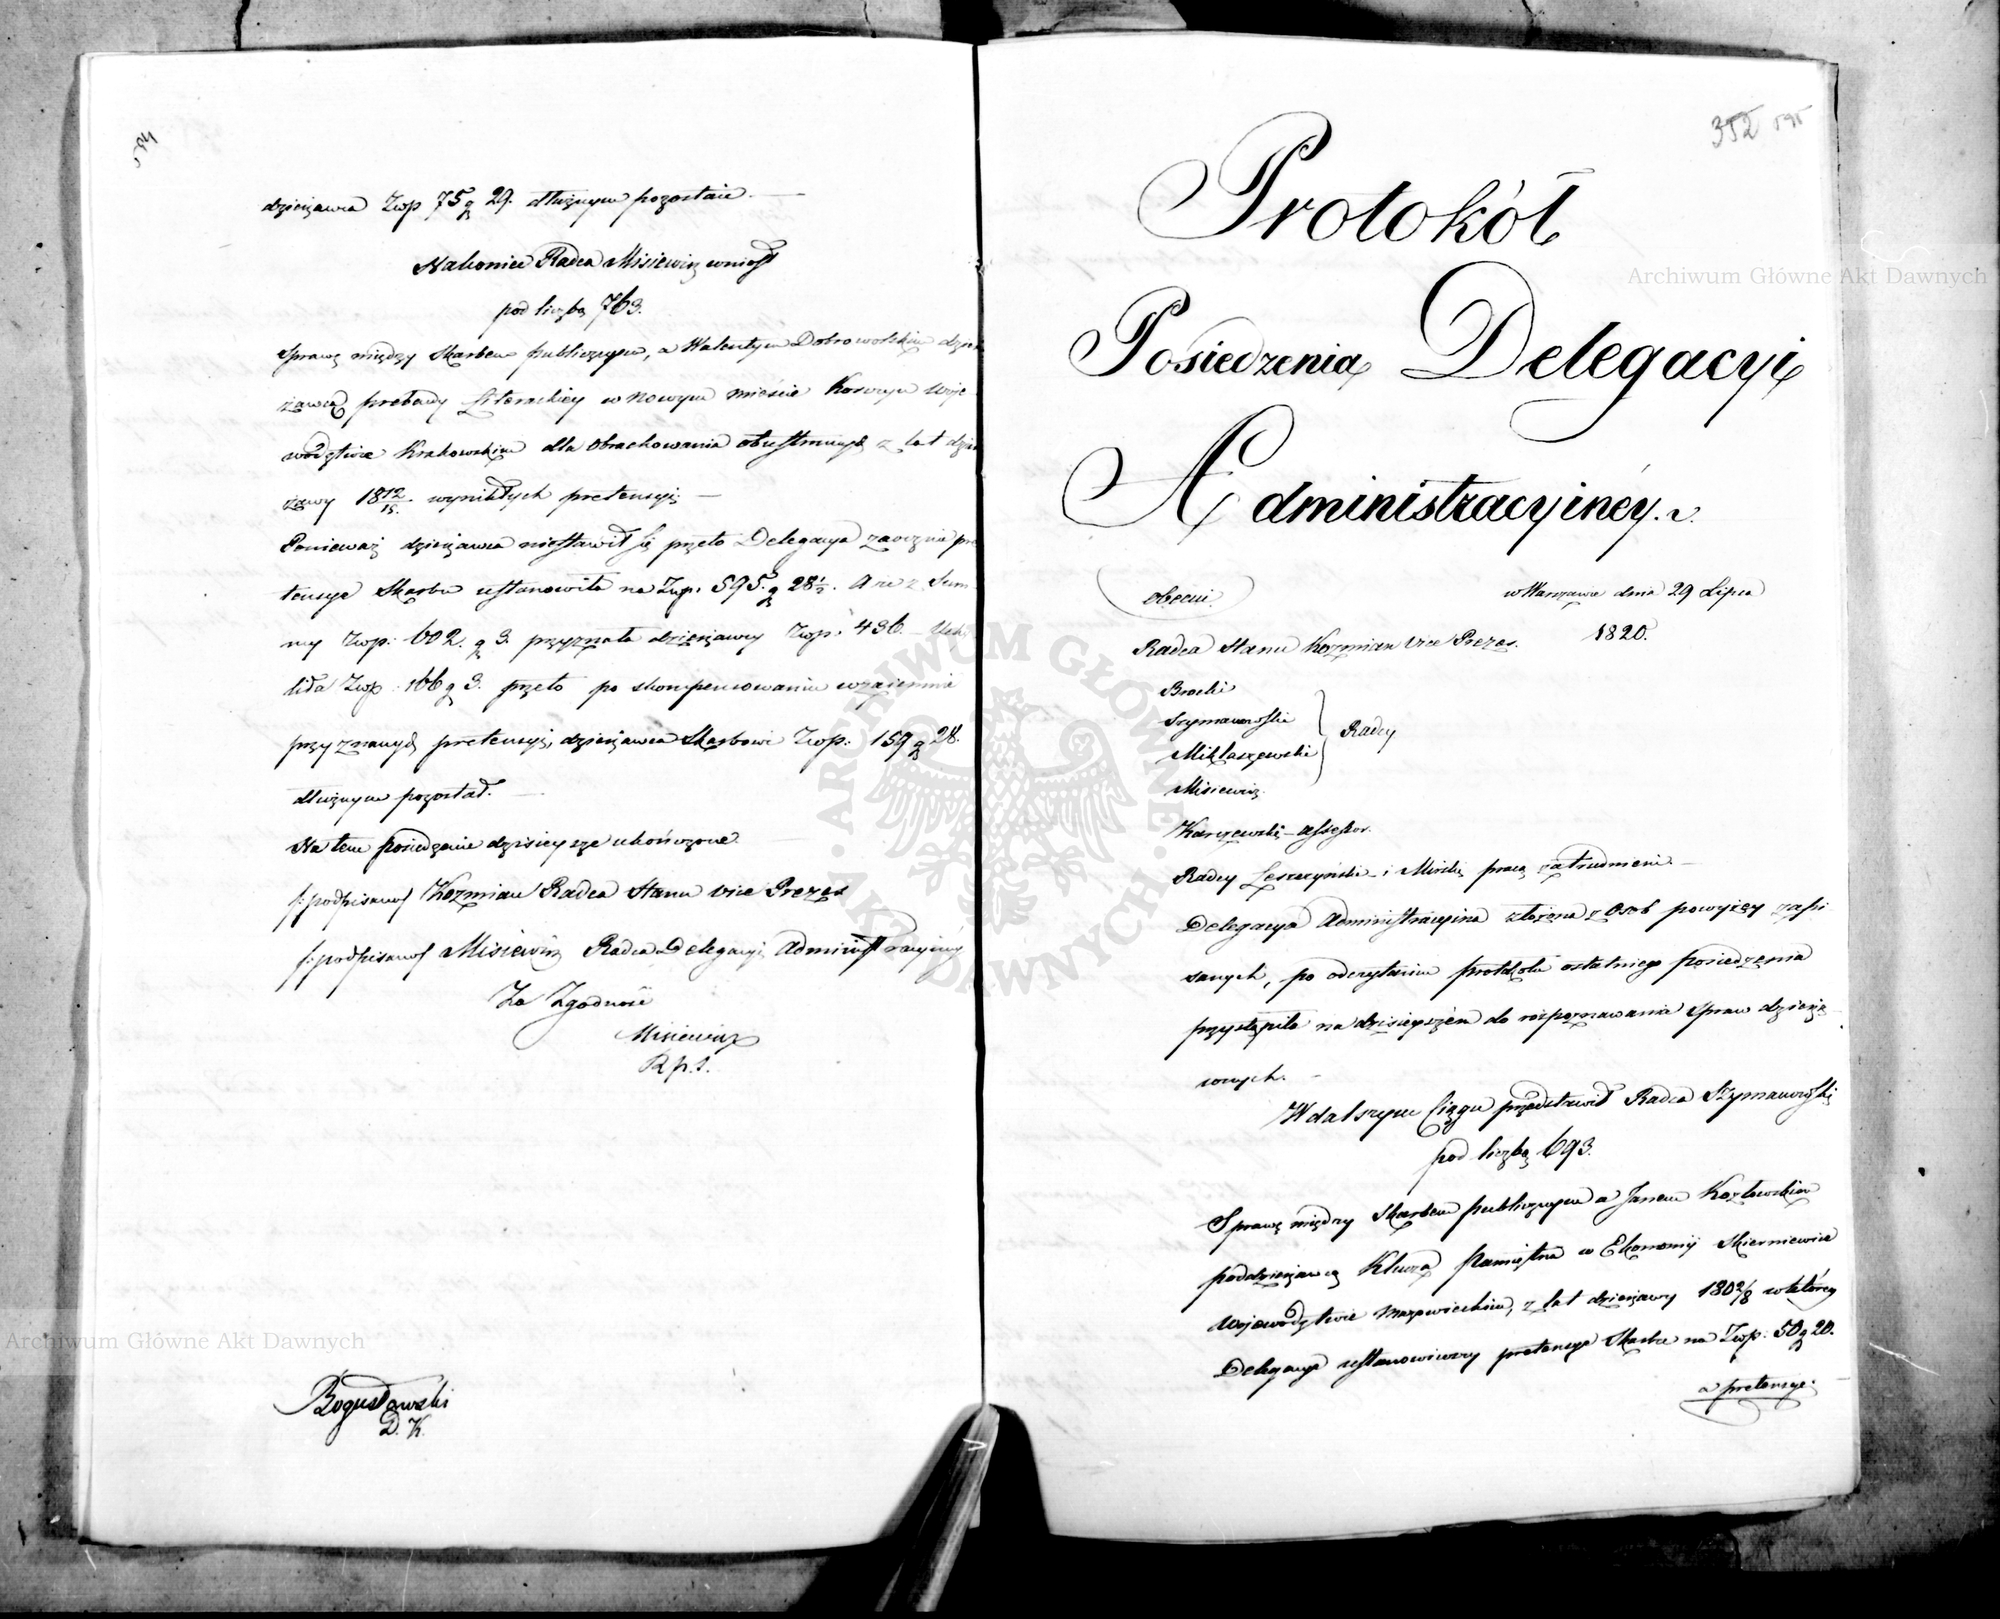 dzierżawca Zwp 75 g 29. dłużnym pozostaie.
Nakoniec Radca Misiewicz wniosł
pod liczbą 763.
Sprawę między Skarbem publicznym, a Walentym Dobrowolskim dzier
żawcą prebendy Literackiey w Nowym mieście Korczyn Woje
wództwie Krakowskim dla obrachowania obustronnych z lat dzier
żawy 1812/15. wynikłych pretensyi
Ponieważ dzierżawca niestawił się przeto Delegacya zaocznie pre
tensye Skarbu ustanowiła na Zwp. 595. g 28½. A że z Sum
my Zwp: 602. g 3 przyznała dzierżawcy Zwp: 436.
liła Zwp. 166 g 3. przeto po skompensowaniu wzaiemnie
przyznanych pretensyi, dzierżawca Skarbowi Zwp: 159 g 28.
dłużnym pozostał.
Na tem posiedzenie dzisieysze ukończone.
/:podpisano/ Kozmian Radca Stanu Vice Prezes
/:podpisano/ Misiewicz Radca Delegacyi Administracyiney
Za Zgodność
Misiewicz
R.p.S.
Bogusławski
D. K.
352 595
Protokół
Posiedzenia Delegacyi
Administracyinéy.
obecni.
w Warszawie dnia 29 Lipca
1820.
Radca Stanu Kozmian Vice Prezes.
Brocki
Szymanowski
Miklaszewski
Radcy
Misiewicz
Karczewski - Assessor.
Radcy Leszczyński i Mirski pracą zatrudnieni.
Delegacya Administracyina złożona z Osob powyżey zapi
sanych, po odczytaniu protokółu ostatniego posiedzenia
przystąpiła na dzisieyszém do rozpoznawania Spraw dzierża
wnych.
W dalszym Ciągu przedstawił Radca Szymanowski
pod liczbą 693.
Sprawę między Skarbem publicznym a Janem Kozłowskim
poddzierżawcą Klucza Pamiętna w Ekonomij Skierniewice
Województwie Mazowieckim, z lat dzierżawy 1802/8 w któréy
Delegacya ustanowiwszy pretensye Skarbu na Zwp: 50 g 20.
a pretensye
Archiwum Główne Akt Dawnych
Archiwum Główne Akt Dawnych
ARCHIWUM GŁÓWNE AKT DAWNYCH